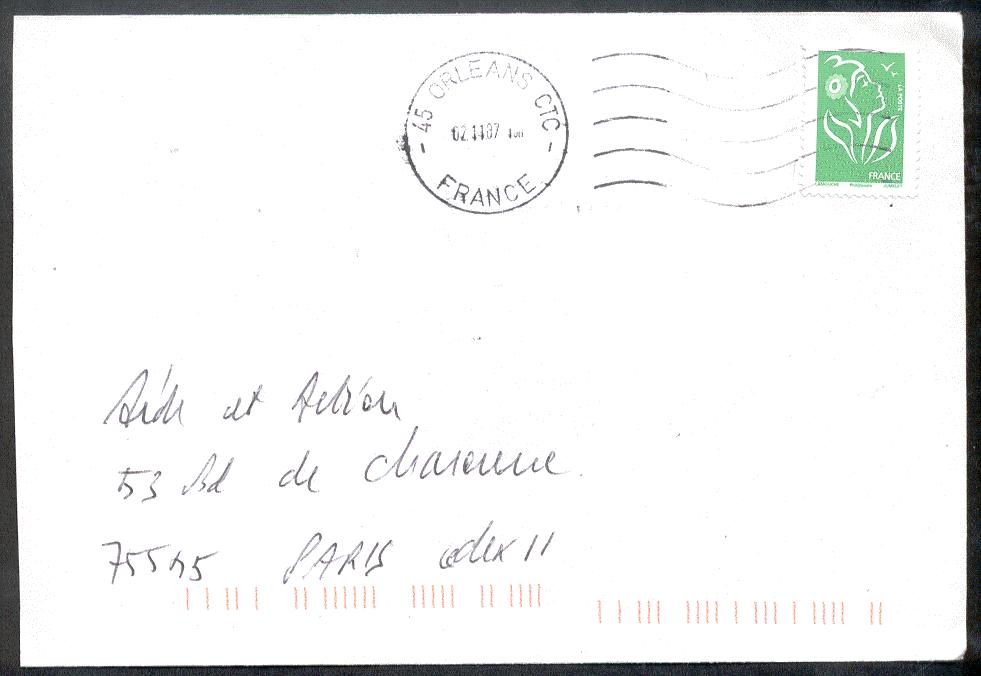 - 45 ORLEANS CTC -
02.11.07
FRANCE
LA POSTE
FRANCE
LAMOUCHE Phil@poste JUMELET
Aide et Action
53 Bd de Charonne
75545 PARIS cedex 11